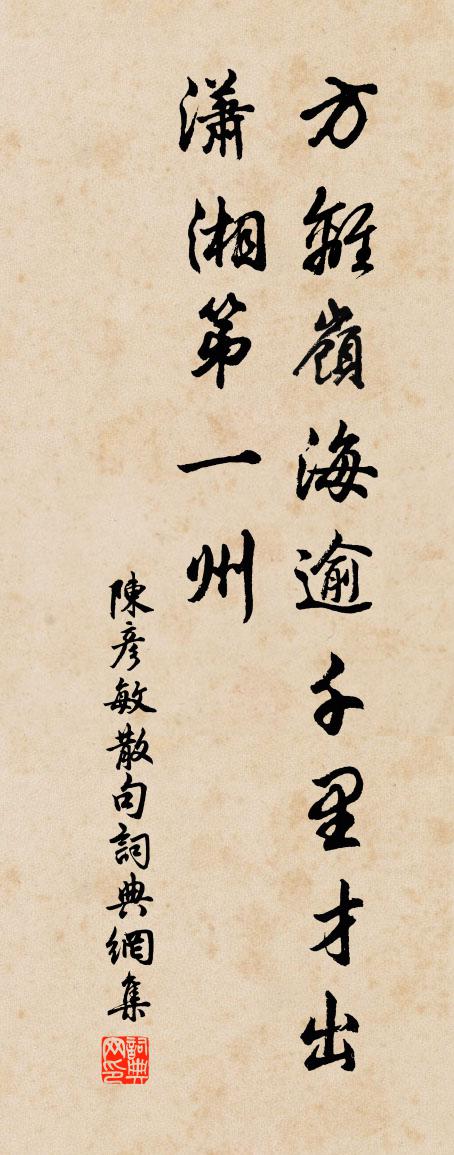 方離嶺海逾千里才出
瀟湘第一州
陳彦敏散句詞典網集
詞典网印